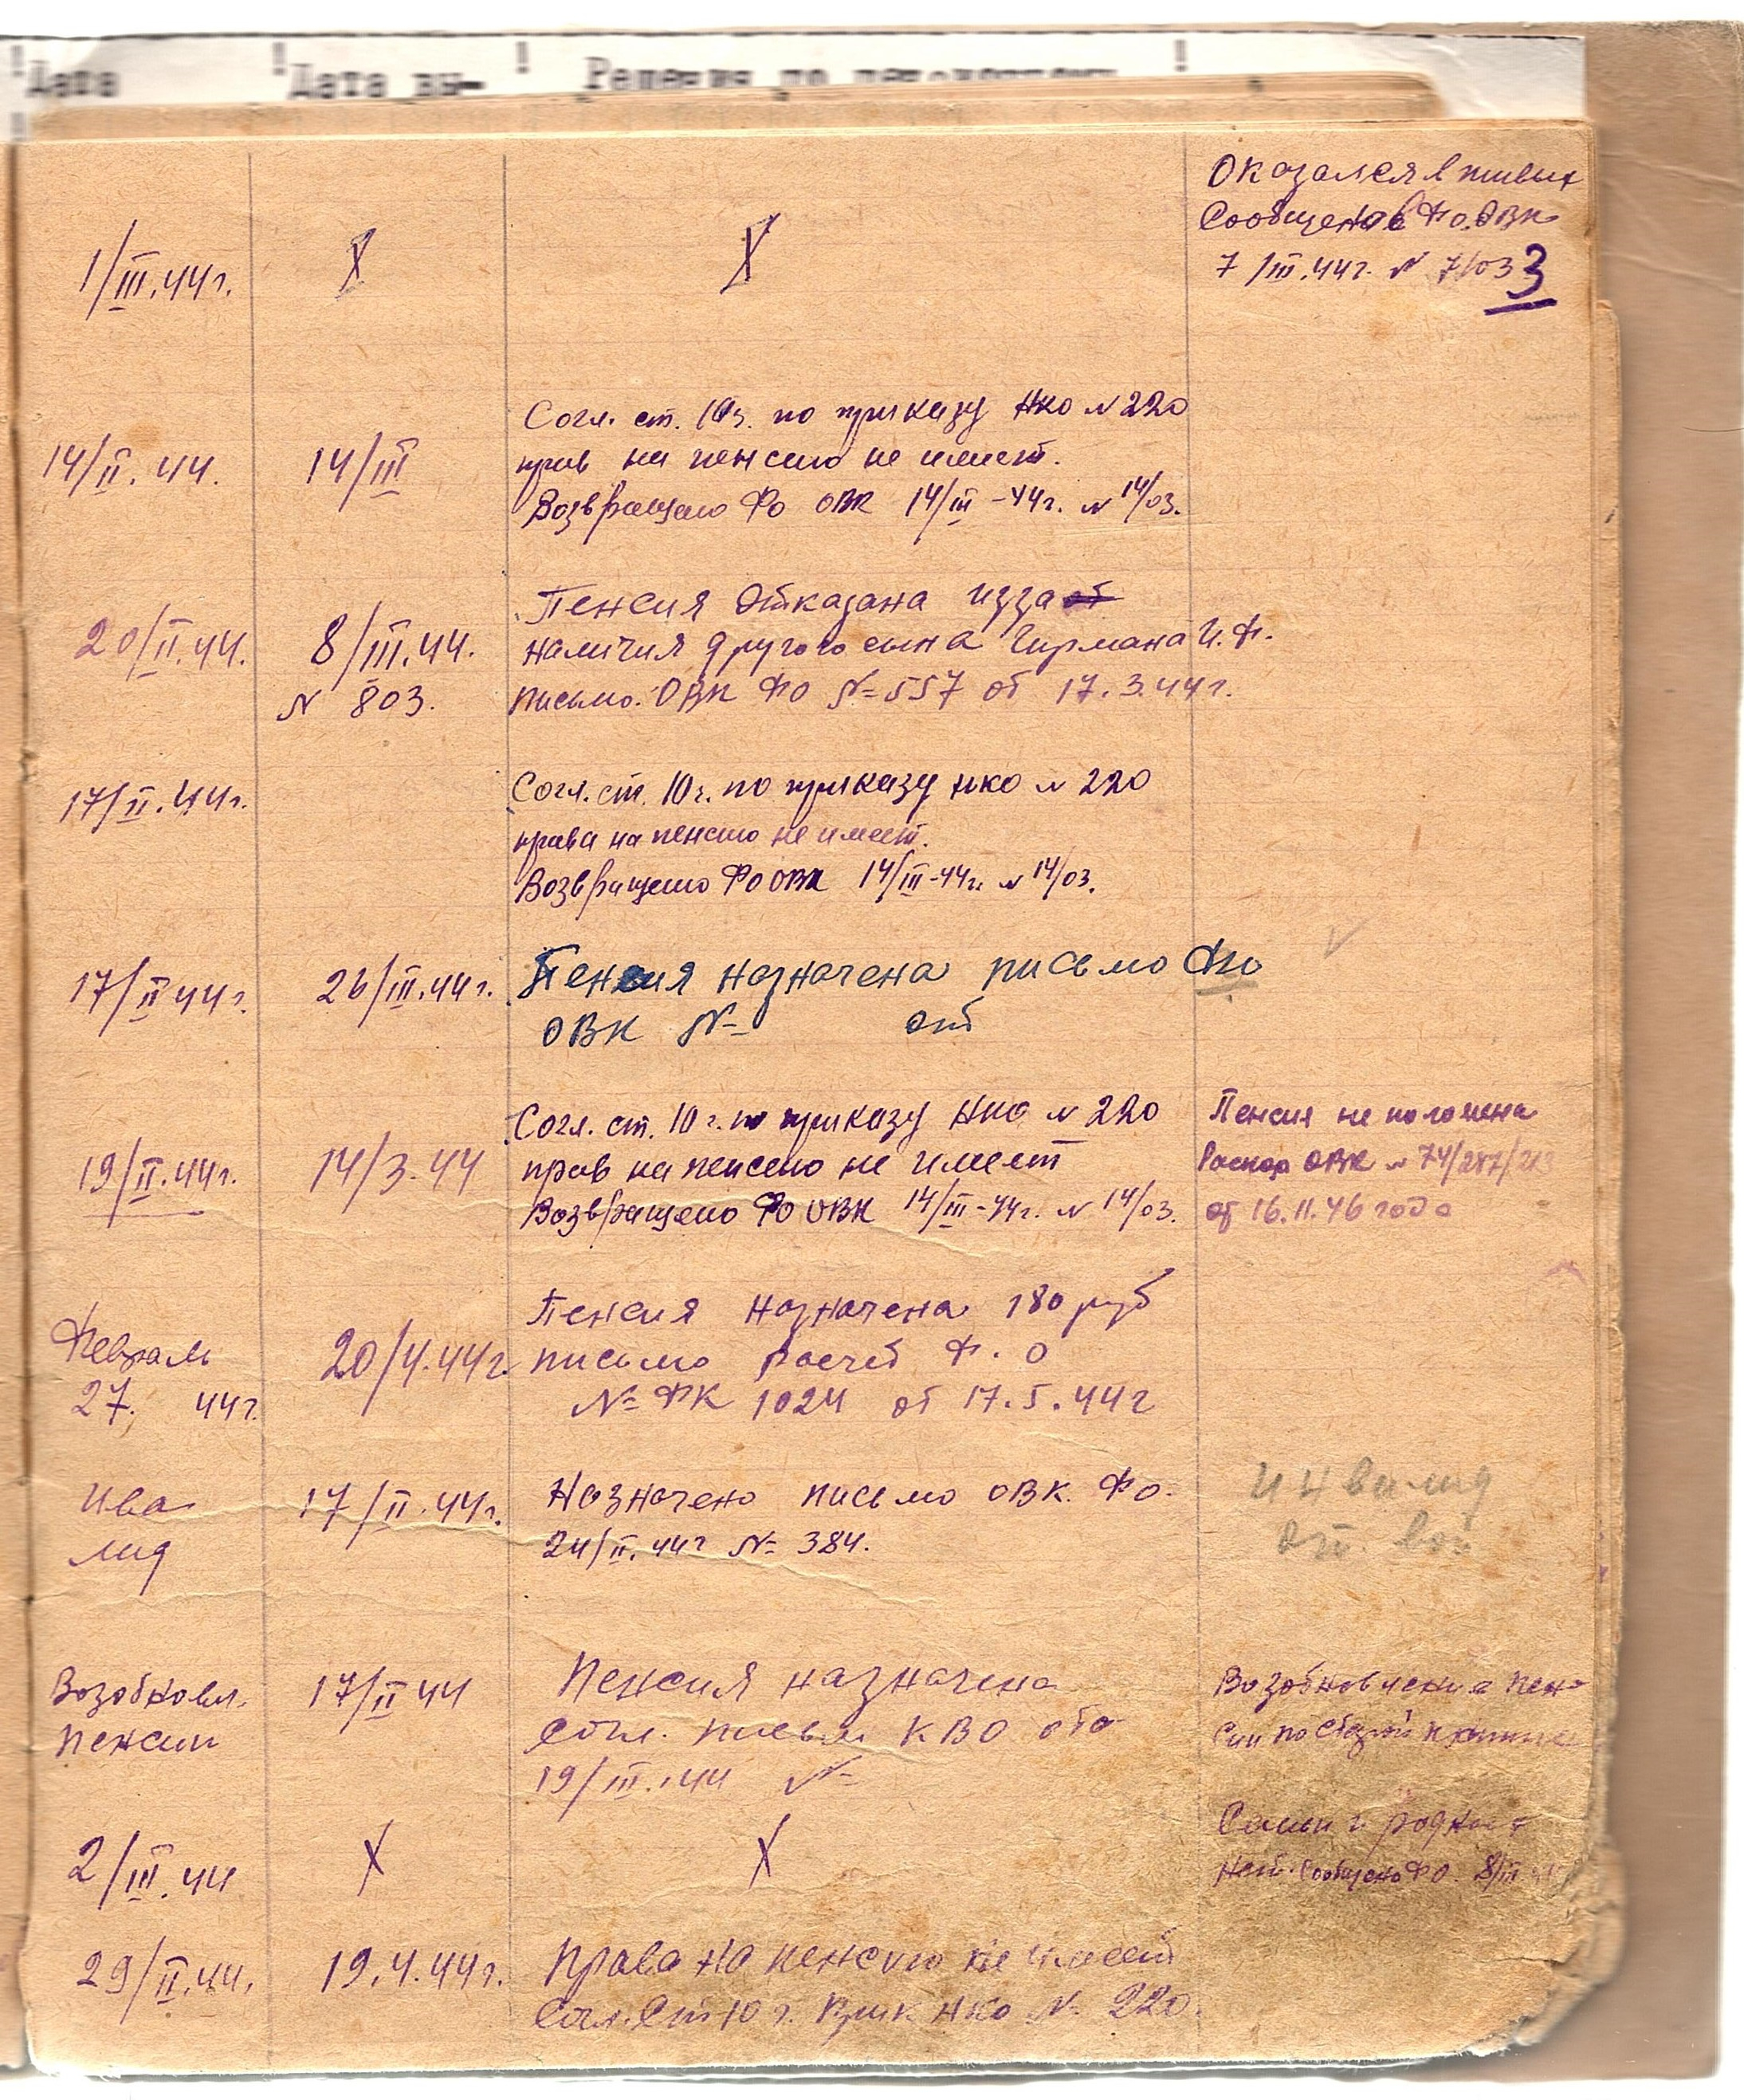 Дата Дата вы- Решения по
Оказался в живых
Сообщено в Фо. ОВК
1/III.44г. X X 7/III.44г. N 7/03 3
Согл. ст. 10г. по приказу НКО N 220
14/II.44. 14/III прав на пенсию не имеет.
Возвращено Фо ОВК 14/III-44г. N 14/03.
Пенсия Отказана изза
20/II.44. 8/III.44. наличия другого сына Гирмана И.Ф.
N 803. письмо. ОВК ФО N=557 от 17.3.44г.
17/II.44г. Согл. ст. 10г. по приказу НКО N 220
права на пенсию не имеет.
Возвращено ФО ОВК 14/III-44г. N 14/03.
17/II 44г. 26/III.44г. Пенсия назначена письмо Фо
ОВК N= от
Согл. ст. 10г. по приказу НКО N 220 Пенсия не положена
19/II.44г. 14/3.44 прав на пенсию не имеет ОВК N 74/287/
Возвращено ФО ОВК 14/III-44г. N 14/03. от 16.11.46 года
Пенсия назначена 180 руб
Февраль 20/4.44г. письмо Ф. О
27. 44г. N= ФК 1024 от 17.5.44г
Ива 17/II.44г. Назначено письмо ОВК. Фо. Инвалид
лид 24/II.44г N= 384. от
Возобновл. 17/II 44 Пенсия назначена Возобновление пен
пенсии согл. письм КВО сии по
19/III.44 N=
2/III.44 X X Семьи и родных
нет. Сообщено ФО. 8/III
29/II.44. 19.4.44г. Права на пенсию не имеет
Согл. Ст 10 г. Прик НКО N 220.